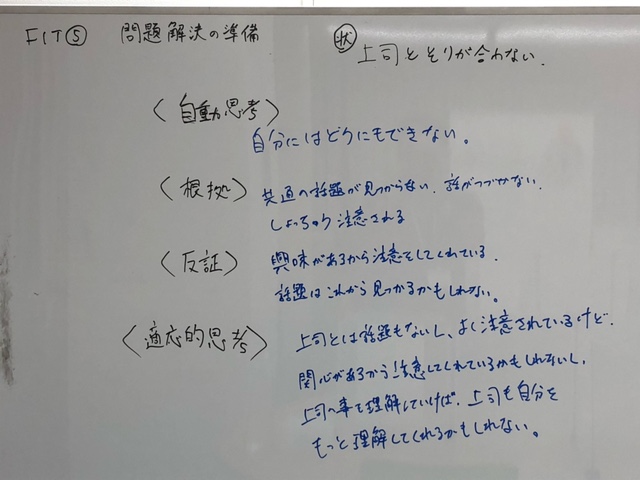 FIT⑤ 問題解決の準備 ㊒状 上司とそりが合わない.
〈自動思考〉
自分にはどうにもできない。
〈根拠〉 共通の話題が見つからない. 話がつづかない.
しょっちゅう注意される
〈反証〉 興味があるから注意をしてくれている.
話題はこれから見つかるかもしれない。
〈適応的思考〉 上司とは話題もないし、よく注意されているけど.
関心があるから注意してくれているかもしれないし,
上司の事を理解していけば. 上司も自分を
もっと理解してくれるかもしれない。